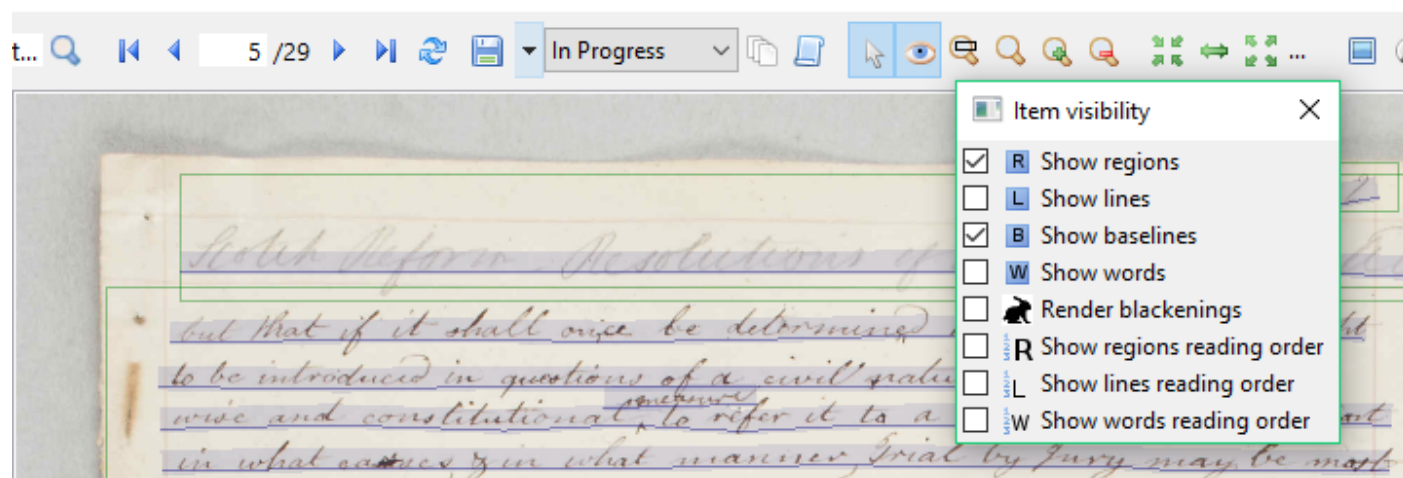 t... 5 /29 In Progress ...
Item visibility
R Show regions
L Show lines
B Show baselines
W Show words
Render blackenings
R Show regions reading order
L Show lines reading order
W Show words reading order
2
Scotch Reform. Resolutions of
but that if it shall once be determined
to be introduced in questions of a civil natu
measure
wise and constitutional to refer it to a
in what causes & in what manner, Trial by Jury may be most